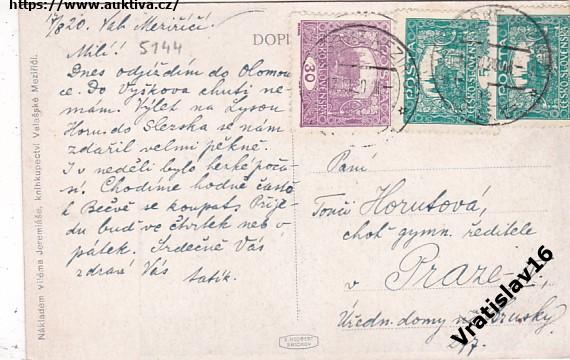 https://www.auktiva.cz/
17/8 20. Val. Meziříčí.
Milí! 5144
Dnes odjíždím do Olomou-
ce. Do Vyškova chuti ne-
mám. Výlet na Lysou
Horu do Slezska se nám
zdařil velmi pěkně.
I v neděli bylo hezké poča-
sí. Chodíme hodně často
k Bečvě se koupat. Přije-
du buď ve čtvrtek neb v
pátek. Srdečně Vás
zdraví Váš
tatík.
Nákladem Viléma Jeremiáše, knihkupectví Valašské Meziříčí.
DOPI
30
POŠTA
ČESKO-SLOVENSKÁ
Paní
Horutová,
choť gymn. ředitele
v Praze
Úředn. domy
Vratislav16